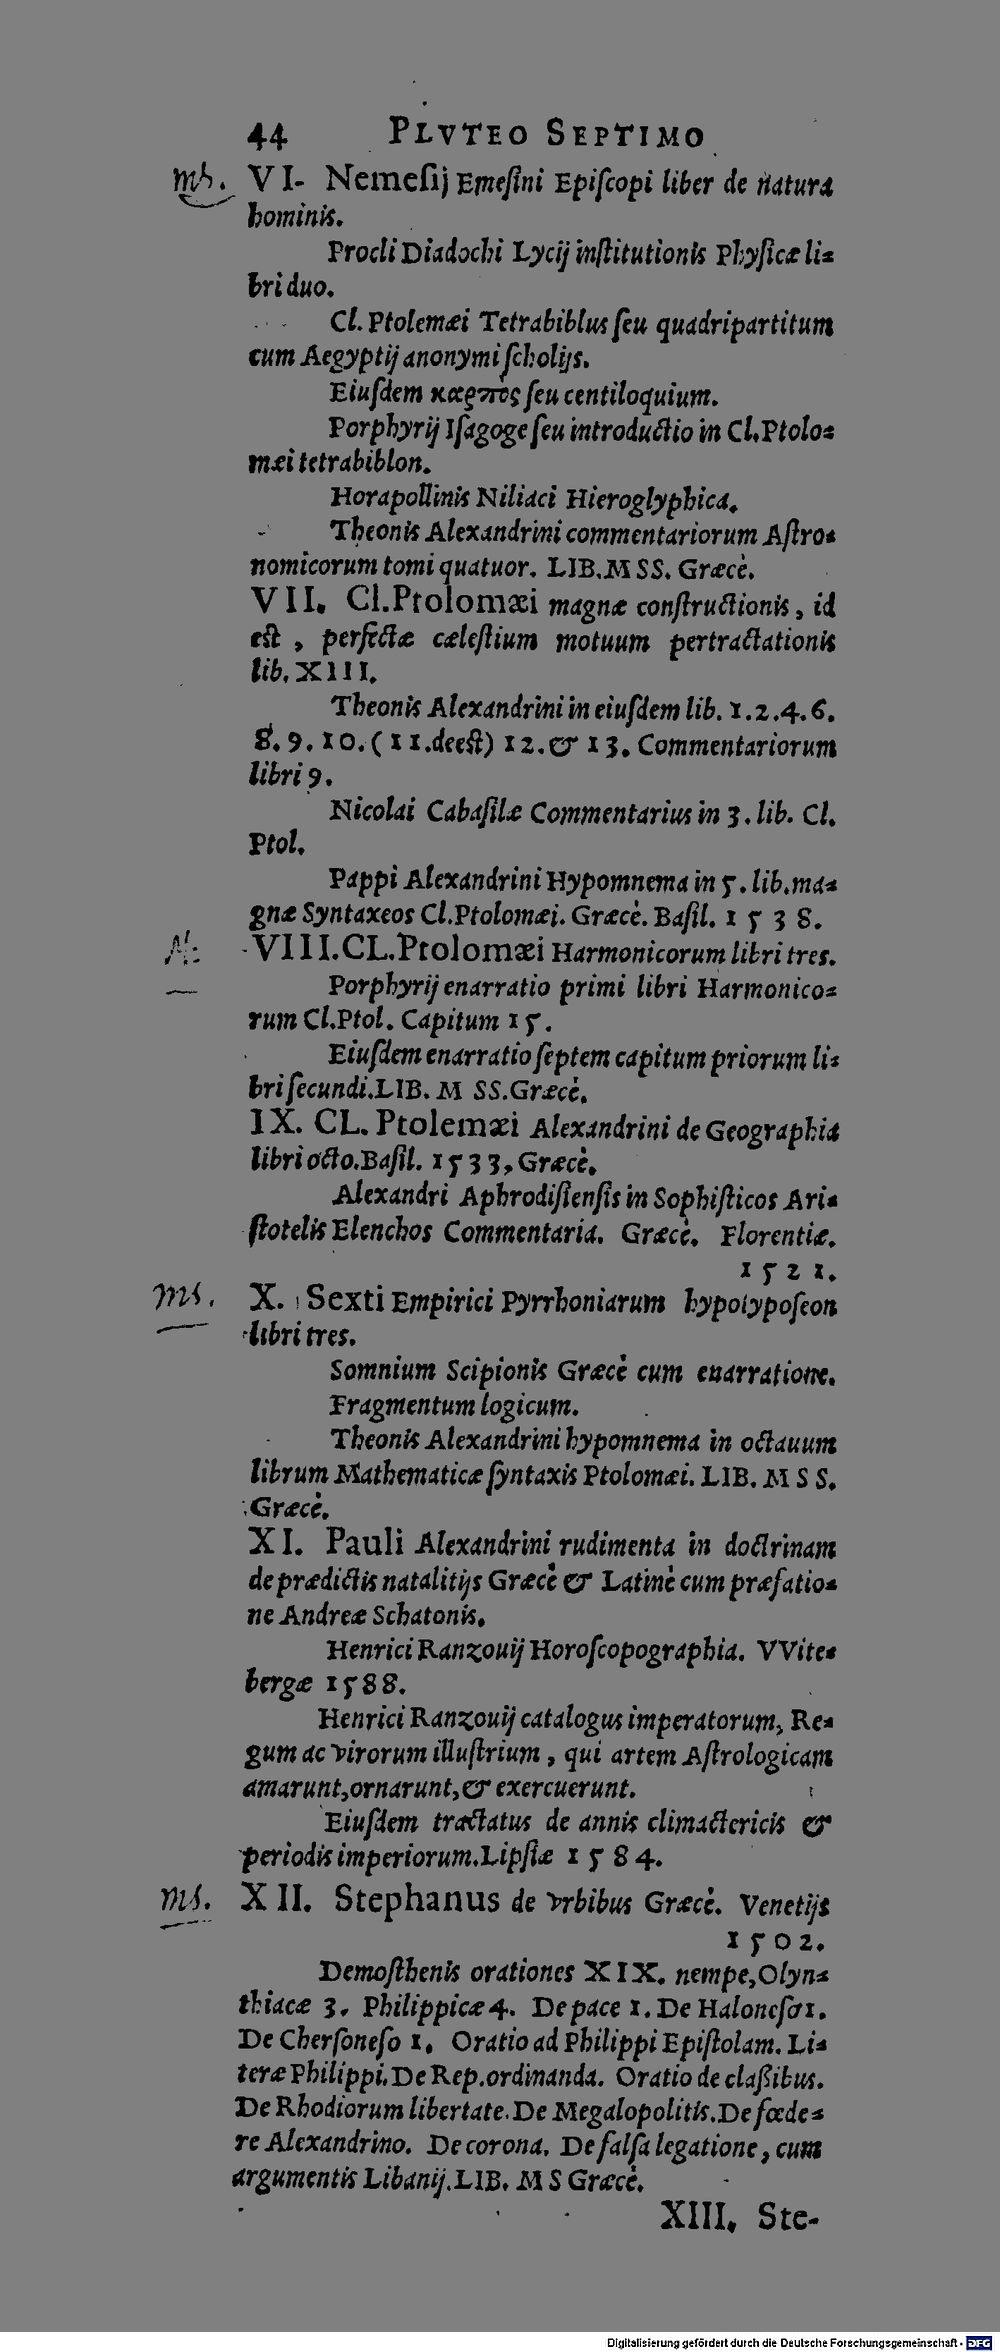 44 PLVTEO SEPTIMO
ms. VI. Nemeſij Emeſini Epiſcopi liber de natura
hominis.
Procli Diadochi Lycij inſtitutionis Phyſicæ li-
bri duo.
Cl. Ptolemæi Tetrabiblus ſeu quadripartitum
cum Aegyptij anonymi ſcholijs.
Eiuſdem καρπὸς ſeu centiloquium.
Porphyrij Iſagoge ſeu introductio in Cl. Ptolo-
mæi tetrabiblon.
Horapollinis Niliaci Hieroglyphica.
Theonis Alexandrini commentariorum Aſtro-
nomicorum tomi quatuor. LIB. MSS. Græcè.
VII. Cl. Ptolomæi magnæ conſtructionis, id
eſt, perfectæ cæleſtium motuum pertractationis
lib. XIII.
Theonis Alexandrini in eiuſdem lib. 1. 2. 4. 6.
8. 9. 10. (11. deeſt) 12. & 13. Commentariorum
libri 9.
Nicolai Cabaſilæ Commentarius in 3. lib. Cl.
Ptol.
Pappi Alexandrini Hypomnema in 5. lib. ma-
gnæ Syntaxeos Cl. Ptolomæi. Græcè. Baſil. 1538.
VIII. CL. Ptolomæi Harmonicorum libri tres.
Porphyrij enarratio primi libri Harmonico-
rum Cl. Ptol. Capitum 15.
Eiuſdem enarratio ſeptem capitum priorum li-
bri ſecundi. LIB. MSS. Græcè.
IX. CL. Ptolemæi Alexandrini de Geographia
libri octo. Baſil. 1533, Græcè.
Alexandri Aphrodiſienſis in Sophiſticos Ari-
ſtotelis Elenchos Commentaria. Græcè. Florentiæ.
1521.
ms. X. Sexti Empirici Pyrrhoniarum hypotypoſeon
libri tres.
Somnium Scipionis Græcè cum enarratione.
Fragmentum logicum.
Theonis Alexandrini hypomnema in octauum
librum Mathematicæ ſyntaxis Ptolomæi. LIB. MSS.
Græcè.
XI. Pauli Alexandrini rudimenta in doctrinam
de prædictis natalitijs Græcè & Latinè cum præfatio-
ne Andreæ Schatonis.
Henrici Ranzouij Horoſcopographia. VVite-
bergæ 1588.
Henrici Ranzouij catalogus imperatorum, Re-
gum ac virorum illuſtrium, qui artem Aſtrologicam
amarunt, ornarunt, & exercuerunt.
Eiuſdem tractatus de annis climactericis &
periodis imperiorum. Lipſiæ 1584.
ms. XII. Stephanus de vrbibus Græcè. Venetijs
1502.
Demoſthenis orationes XIX. nempe, Olyn-
thiacæ 3. Philippicæ 4. De pace 1. De Haloneſo 1.
De Cherſoneſo 1. Oratio ad Philippi Epiſtolam. Li-
teræ Philippi. De Rep. ordinanda. Oratio de claßibus.
De Rhodiorum libertate. De Megalopolitis. De fœde-
re Alexandrino. De corona. De falſa legatione, cum
argumentis Libanij. LIB. MS Græcè.
XIII. Ste-
Digitalisierung gefördert durch die Deutsche Forschungsgemeinschaft - DFG